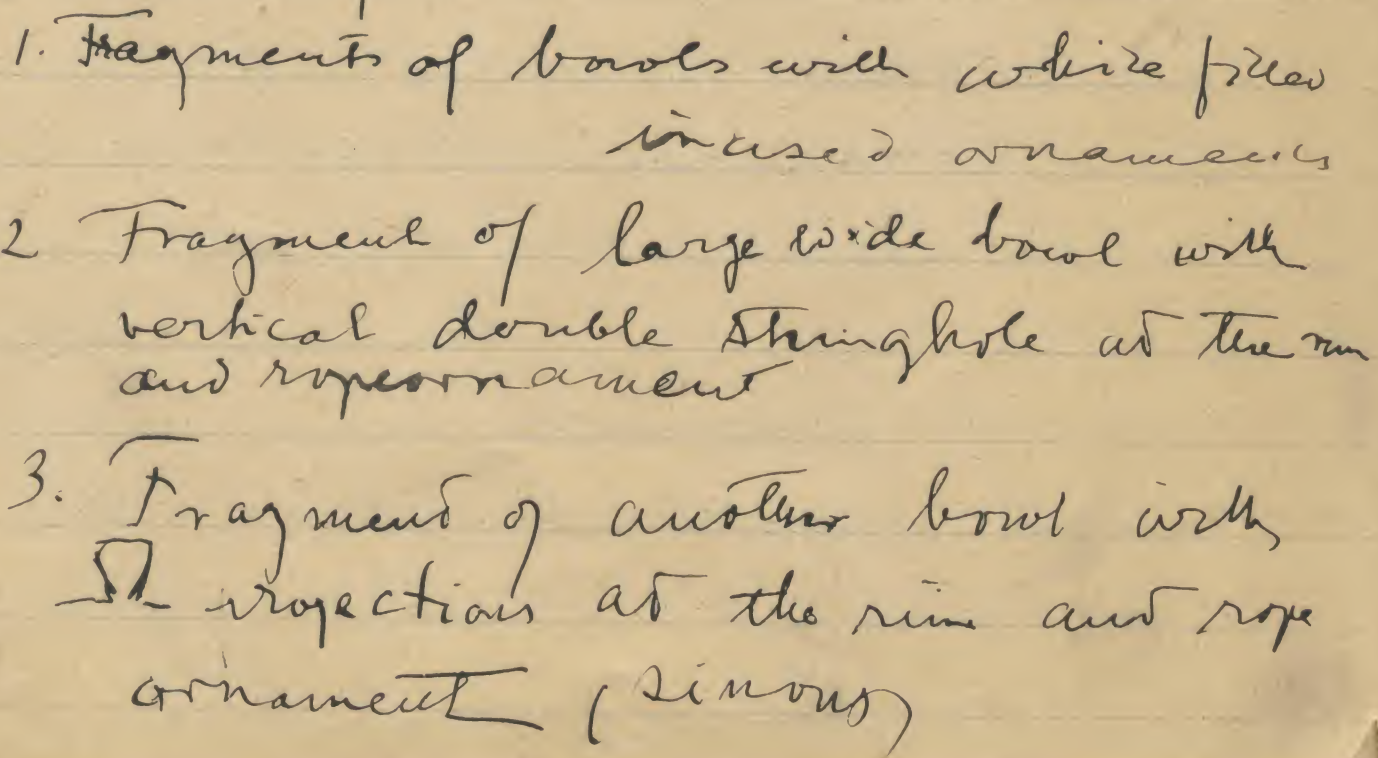 1. Fragments of bowls with white filled
incised ornaments
2 Fragment of large wide bowl with
vertical double stringhole at the rim
and ropeornament
3. Fragment of another bowl with
projections at the rim and rope
ornament (sinuous)